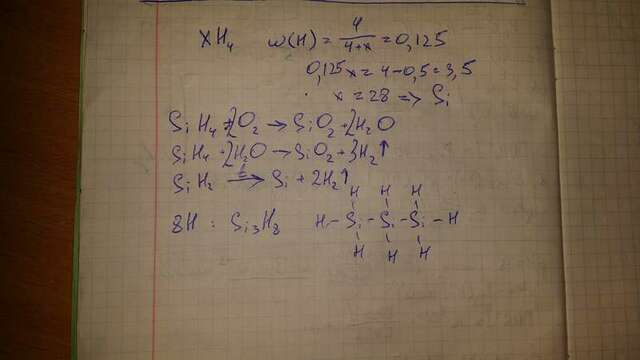 XH₄ ω(H) = 4/(4+x) = 0,125
0,125x = 4 - 0,5 = 3,5
x = 28 => Si
SiH₄ + 2O₂ → SiO₂ + 2H₂O
SiH₄ + 2H₂O → SiO₂ + 3H₂↑
SiH₂ →(t) Si + 2H₂↑
H H H
8H : Si₃H₈ H - Si - Si - Si - H
H H H